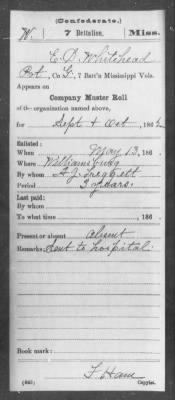 (Confederate.)
W. 7 Battalion, Miss.
E. D. Whitehead
Pvt, Co. 7 Batt'n Mississippi Vols.
Appears on
Company Muster Roll
of the organization named above,
for Sept & Oct, 186
Enlisted:
When May 13, 186 .
Where Williamsburg
By whom A. J.
Period 3 years.
Last paid:
By whom
To what time , 186 .
Present or absent Absent
Remarks: Sent to hospital.
Book mark:
F. Ham
(642) Copyist.